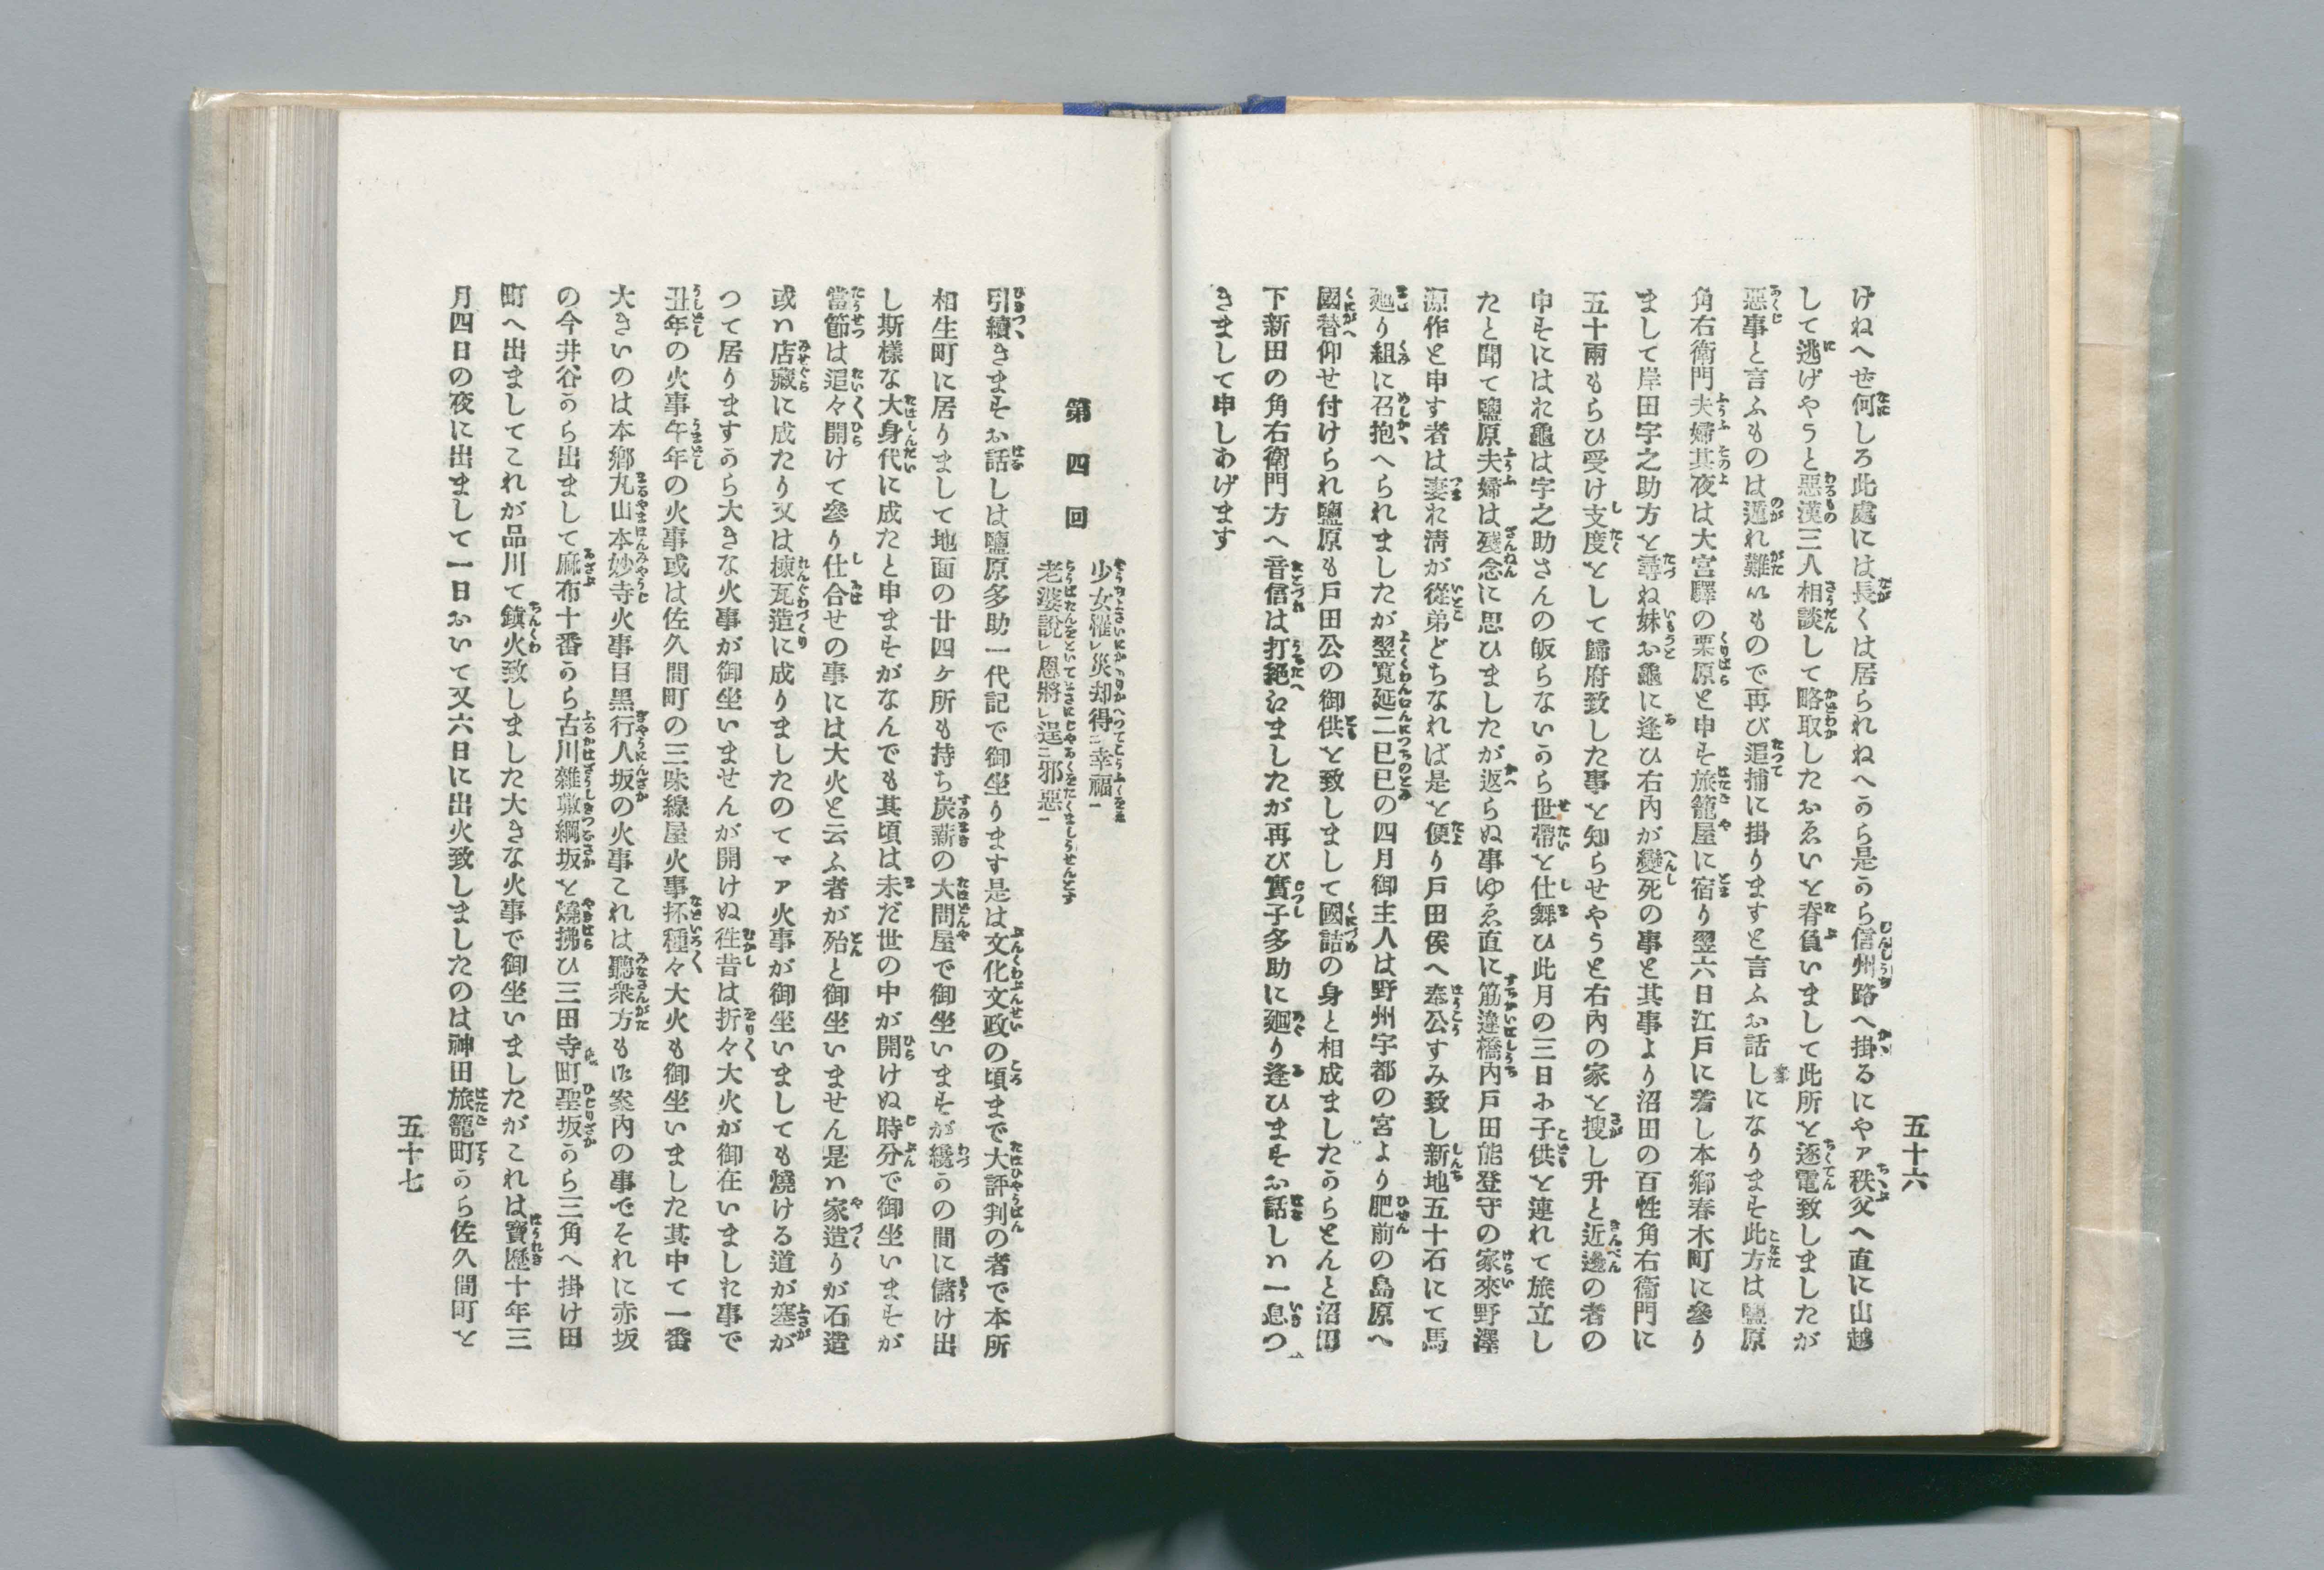 五十六
けねへせ何しろ此處には長くは居られねへから是から信州路へ掛るにやァ秩父へ直に山越
して逃げやうと惡漢三人相談して略取したおゑいを脊負いまして此所を逐電致しましたが
惡事と言ふものは遁れ難いもので再び追捕に掛りますと言ふお話しになりますが此方は鹽原
角右衛門夫婦其夜は大宮驛の栗原と申す旅籠屋に宿り翌六日江戸に着し本郷春木町に參り
まして岸田宇之助方を尋ね妹お龜に逢ひ右内が變死の事と其事より沼田の百姓角右衞門に
五十兩もらひ受け支度をして歸府致した事を知らせやうと右内の家を搜し升と近邊の者の
申すにはお龜は宇之助さんの皈らないから世帶を仕舞ひ此月の三日に子供を連れて旅立し
たと聞て鹽原夫婦は殘念に思ひましたが返らぬ事ゆゑ直に筋違橋内戸田能登守の家來野澤
源作と申す者は妻お淸が從弟どちなれば是を便り戸田侯へ奉公すみ致し新地五十石にて馬
廻り組に召抱へられましたが翌寬延二己巳の四月御主人は野州宇都の宮より肥前の島原へ
國替仰せ付けられ鹽原も戸田公の御供を致しまして國詰の身と相成ましたからとんと沼田
下新田の角右衛門方へ音信は打絕えましたが再び實子多助に廻り逢ひますお話しハ一息つ
きまして申しあげます
第四回
少女罹レ災却得二幸福一
老婆說レ恩將レ逞二邪惡一
引續きますお話しは鹽原多助一代記で御坐ります是は文化文政の頃まで大評判の者で本所
相生町に居りまして地面の廿四ヶ所も持ち炭薪の大問屋で御坐いますが纔かの間に儲け出
し斯樣な大身代に成たと申ますがなんでも其頃は未だ世の中が開けぬ時分で御坐いますが
當節は追々開けて參り仕合せの事には大火と云ふ者が殆と御坐いません是ハ家造りが石造
或ハ店藏に成たり又は棟瓦造に成りましたのでマァ火事が御坐いましても燒ける道が塞が
つて居りますから大きな火事が御坐いませんが開けぬ徃昔は折々大火が御在いました事で
丑年の火事午年の火事或は佐久間町の三味線屋火事抔種々大火も御坐いました其中で一番
大きいのは本鄕丸山本妙寺火事目黑行人坂の火事これは聽衆方も御案内の事でそれに赤坂
の今井谷から出まして麻布十番から古川雜敷綱坂を燒拂ひ三田寺町聖坂から三角へ掛け田
町へ出ましてこれが品川で鎭火致しました大きな火事で御坐いましたがこれは寶曆十年三
月四日の夜に出まして一日おいて又六日に出火致しましたのは神田旅籠町から佐久間町を
五十七